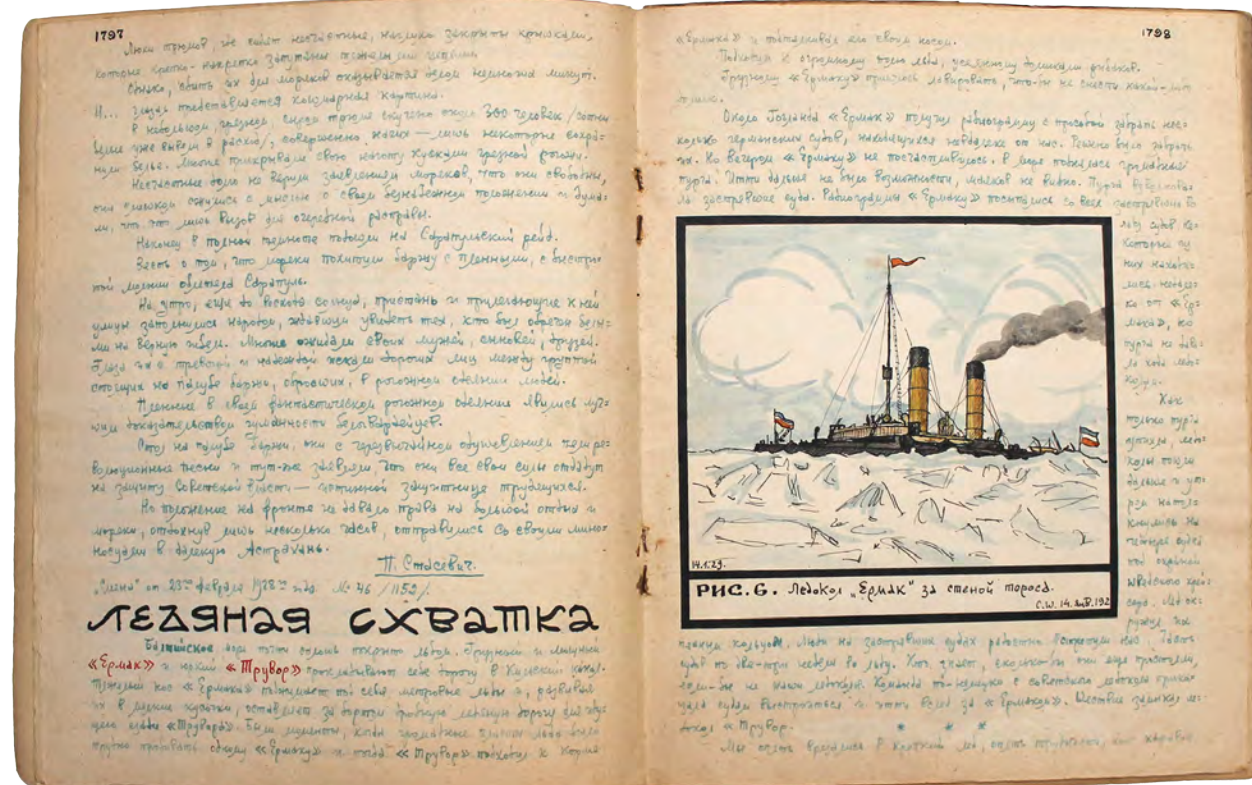 1797
Люки трюмов, где сидят несчастные, наглухо закрыты крышками,
которые крепко-накрепко запутаны тяжелыми цепями.
Однако, сбить их для моряков оказывается делом нескольких минут.
И... глазам представляется кошмарная картина.
В небольшом, грязном, сыром трюме скучено около 300 человек /сотни
были уже вывели в расход/, совершенно нагих — лишь некоторые сохра=
нили белье. Многие прикрывали свою наготу кусками грязной рогожи.
Несчастные долго не верили заявлениям моряков, что они свободны,
они слишком свыклись с мыслью о своем безнадежном положении и дума=
ли, что это лишь вызов для очередной расправы.
Наконец в полной темноте подошли на Сарапульский рейд.
Весть о том, что моряки похитили баржу с пленными, с быстро=
той молнии облетела Сарапуль.
На утро, еще до восхода солнца, пристань и прилегающие к ней
улицы заполнились народом, ждавшим увидеть тех, кто был обречен белы=
ми на верную гибель. Многие ожидали своих мужей, сыновей, друзей.
Глаза их с тревогой и надеждой искали дорогих лиц между группой
стоящих на палубе баржи, обросших, в рогожном одеянии людей.
Пленные в своем фантастическом рогожном одеянии явились луч=
шим доказательством гуманности белогвардейцев.
Стоя на палубе баржи, они с чрезвычайным одушевлением пели ре=
волюционные песни и тут-же заявляли, что они все свои силы отдадут
на защиту Советской власти — истинной защитнице трудящихся.
Но положение на фронте не давало права на большой отдых и
моряки, отдохнув лишь несколько часов, отправились со своими мино=
носцами в далекую Астрахань.
П. Стасевич.
„Смена" от 23го февраля 1928го года. № 46 /1152/.
ЛЕДЯНАЯ СХВАТКА
Балтийское море почти сплошь покрыто льдом. Грузный и мощный
«Ермак» и юркий «Трувор» прокладывают себе дорогу в Кильский канал.
Тяжелый нос «Ермака» подминает под себя метровые льды и, разбивая
их в мелкие кусочки, оставляет за бортом дорогу для
«Трувора». Были моменты, когда льда было
трудно пробивать одному «Ермаку» и тогда «Трувор» подходил к корме
1798
«Ермака» и подталкивал его своим носом.
Подошли к огромному полю льда, усеянному домиками рыбаков.
Грузному «Ермаку» пришлось лавировать, чтобы не снести какой-либо
домик.
Около Гогланда «Ермак» получил радиограмму с просьбой забрать нес=
колько германских судов, находящихся невдалеке от нас. Решено было забрать
их. Но вечером «Ермаку» не посчастливилось. В море поднялась
пурга. Итти дальше не было возможности, маяков не видно. Пурга
застрявшие суда. Радиограммы «Ермаку» посыпались со всех застрявших во
льду судов. Не=
которые из
них находи=
лись недале=
ко от «Ер=
мака», но
пурга не дава=
ла хода ледо=
колу.
Как
только пурга
прошла, ледо=
колы пошли
дальше и утр=
ром натол=
кнулись на
судов
под охраной
шведского крей=
сера. Ледок=
РИС. 6. Ледокол „Ермак" за стеной тороса.
14.I.29.
плотным кольцом. Люди на застрявших судах радостно встретили нас. Часть
судов по две-три недели во льду. Кто знает, сколько-бы они еще простояли,
если-бы не наши ледоколы. Команда по-немецки с советского ледокола прика=
зала судам выстроиться и итти вслед за «Ермаком». Шествие замыкал ле=
докол «Трувор».
* * *
Мы опять врезались в крепкий лед, опять